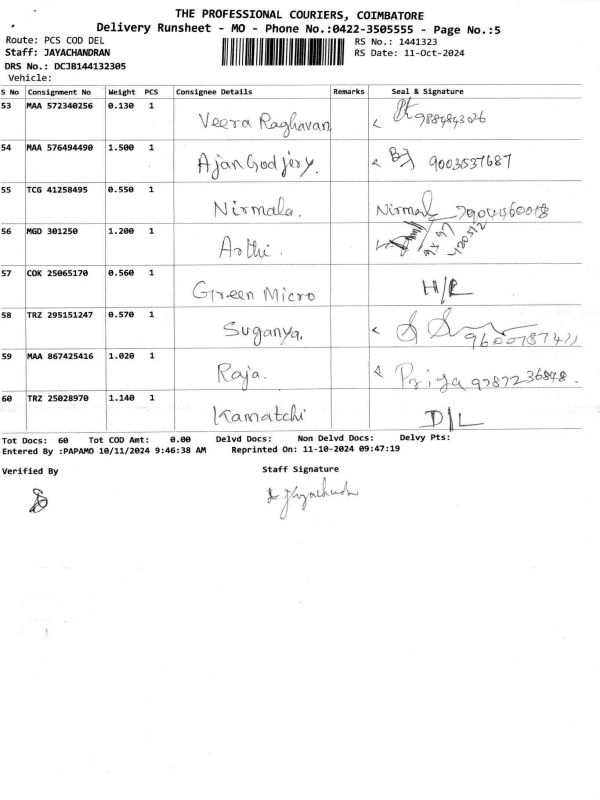 THE PROFESSIONAL COURIERS, COIMBATORE
Delivery Runsheet - MO - Phone No.:0422-3505555 - Page No.:5
Route: PCS COD DEL RS No.: 1441323
Staff: JAYACHANDRAN RS Date: 11-Oct-2024
DRS No.: DCJB144132305
Vehicle:
S No Consignment No Weight PCS Consignee Details Remarks Seal & Signature
53 MAA 572340256 0.130 1 Veera Raghavan
54 MAA 576494490 1.500 1 Ajan Godjery. 9003537687
55 TCG 41258495 0.550 1 Nirmala. Nirmala
56 MGD 301250 1.200 1 Arthi.
57 COK 25065170 0.560 1 Green Micro H/R
58 TRZ 295151247 0.570 1 Suganya.
59 MAA 867425416 1.020 1 Raja. Priya 9787236848.
60 TRZ 25028970 1.140 1 Kamatchi D/L
Tot Docs: 60 Tot COD Amt: 0.00 Delvd Docs: Non Delvd Docs: Delvy Pts:
Entered By :PAPAMO 10/11/2024 9:46:38 AM Reprinted On: 11-10-2024 09:47:19
Verified By Staff Signature